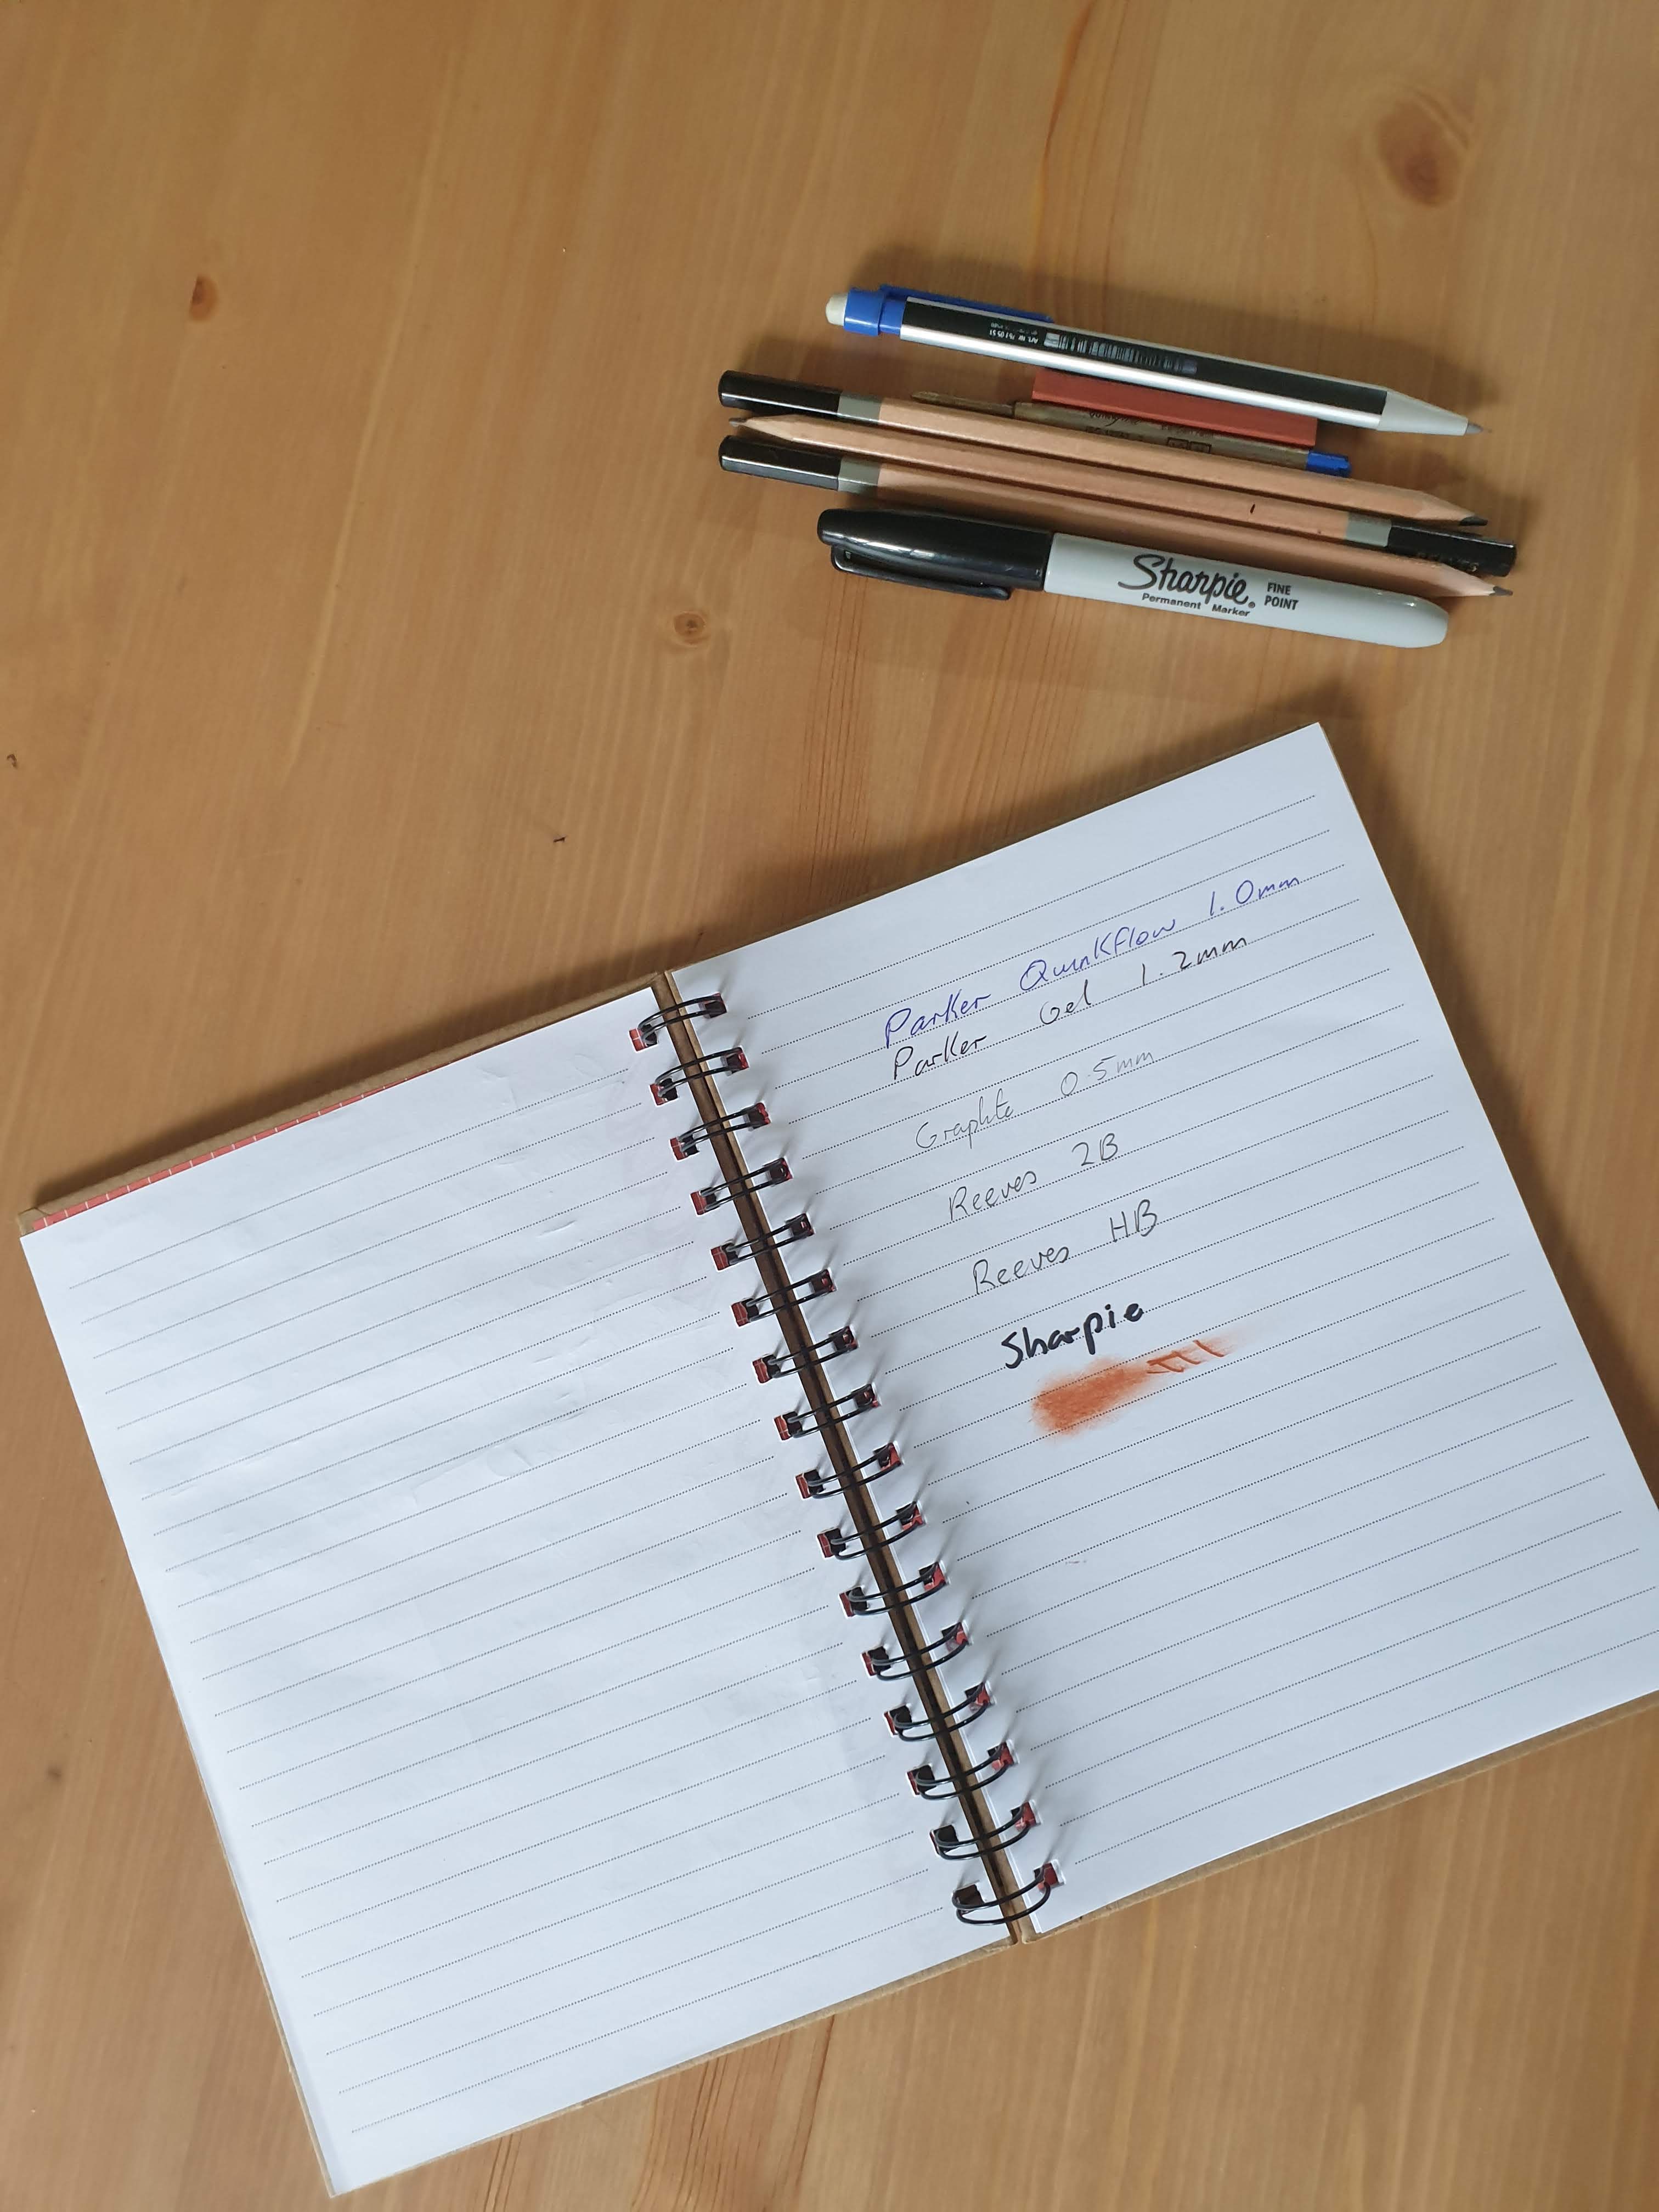 Sharpie. FINE
Permanent Marker POINT
Parker Quinkflow 1.0mm
Parker Gel 1.2mm
Graphite 0.5mm
Reeves 2B
Reeves HB
Sharpie